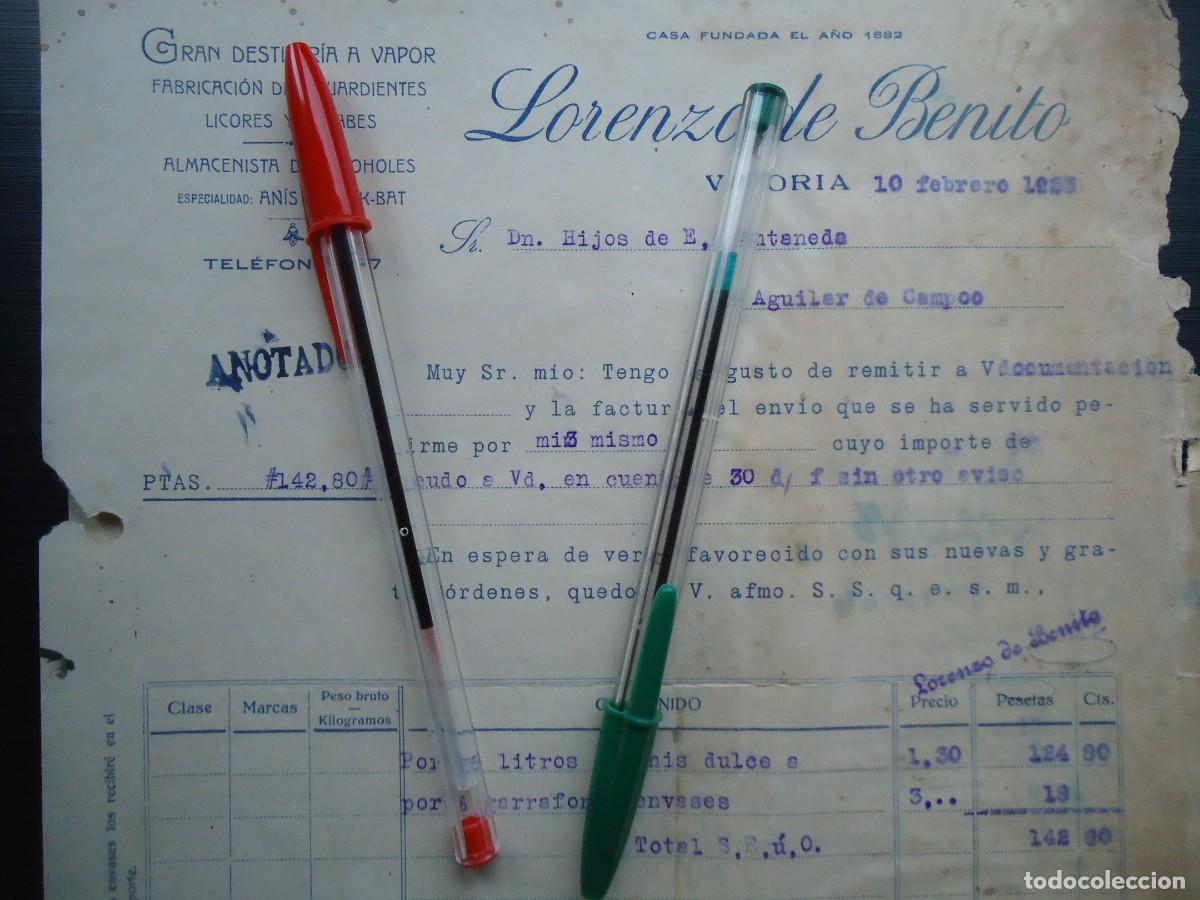 GRAN DESTILERÍA A VAPOR
FABRICACIÓN DE AGUARDIENTES
LICORES Y JARABES
ALMACENISTA DE ALCOHOLES
ESPECIALIDAD: ANÍS K-BAT
TELÉFONO 7
CASA FUNDADA EL AÑO 1882
Lorenzo de Benito
VITORIA 10 febrero 1923
Sr. Dn. Hijos de E, ntaneda
Aguilar de Campoo
ANOTADO
Muy Sr. mío: Tengo el gusto de remitir a V documentacion
y la factura del envío que se ha servido pe-
dirme por mi3 mismo cuyo importe de
PTAS. #142,80# adeudo a Vd, en cuenta a 30 d/ f sin otro aviso
En espera de verme favorecido con sus nuevas y gra-
tas órdenes, quedo de V. afmo. S. S. q. e. s. m.,
Lorenzo de Benito
Clase Marcas Peso bruto — Kilogramos CONTENIDO Precio Pesetas Cts.
Por litros anis dulce a 1,30 124 80
por 6 garrafones envases 3,.. 18
Total S,E,ú,O. 142 80
envases los recibiré en el
todocoleccion